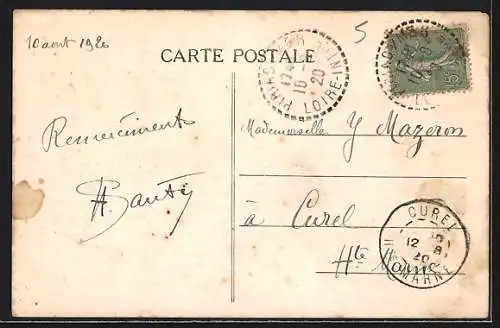 10 aout 1920
5
CARTE POSTALE
LOIRE-IN
17
10
20
Remerciments
Mademoiselle Y Mazeron
à Curel
Hte Marne
CUREL
12
8
20
Hte MARNE